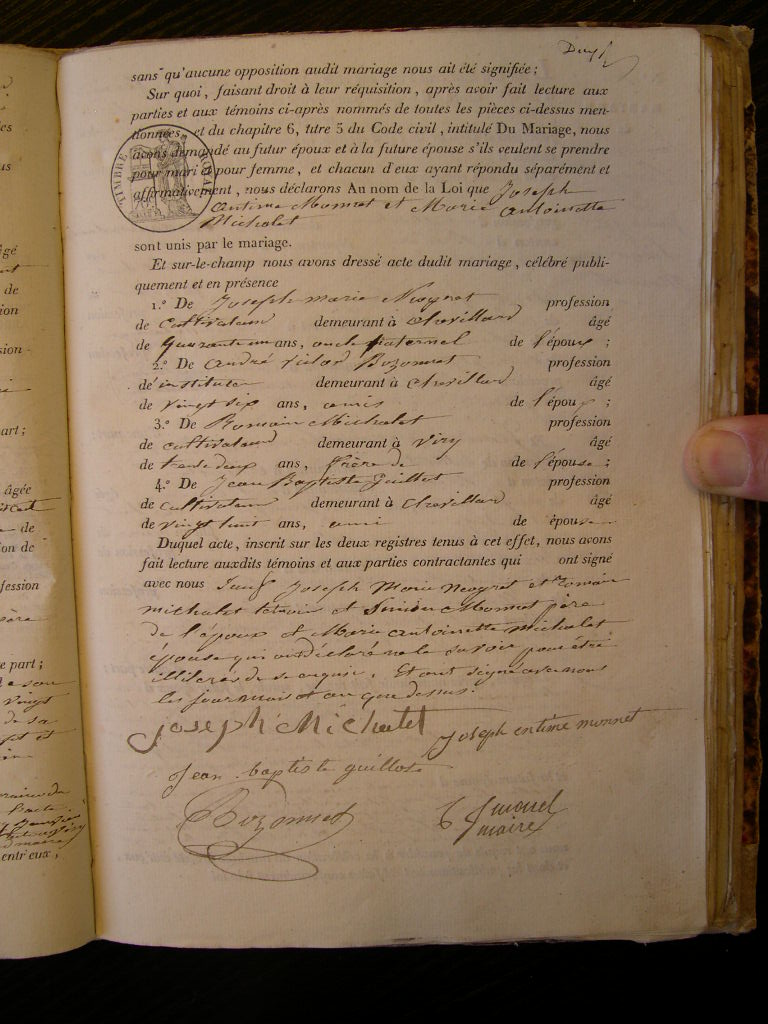 sans qu'aucune opposition audit mariage nous ait été signifiée ;
Sur quoi, faisant droit à leur réquisition, après avoir fait lecture aux
parties et aux témoins ci-après nommés de toutes les pièces ci-dessus men-
tionnées, et du chapitre 6, titre 5 du Code civil, intitulé Du Mariage, nous
avons demandé au futur époux et à la future épouse s'ils veulent se prendre
pour mari et pour femme, et chacun d'eux ayant répondu séparément et
affirmativement, nous déclarons Au nom de la Loi que Joseph
antime Monnet et Marie antoinette
Michalet
TIMBRE ROYAL
sont unis par le mariage.
Et sur-le-champ nous avons dressé acte dudit mariage, célébré publi-
quement et en présence
1.° De Joseph marie Neyret profession
de cultivateur demeurant à chevillard âgé
de quarante un ans, oncle paternel de l'époux ;
2.° De andré victor Bozonnet profession
de instituteur demeurant à chevillard âgé
de vingt six ans, amis de l'époux ;
3.° De Romain Michalet profession
de cultivateur demeurant à viry âgé
de trente deux ans, frère de de l'épouse ;
4.° De Jean Baptiste guillot profession
de cultivateur demeurant à chevillard âgé
de vingt ans, ami de épouse
Duquel acte, inscrit sur les deux registres tenus à cet effet, nous avons
fait lecture auxdits témoins et aux parties contractantes qui ont signé
avec nous Joseph Marie Neyret et romain
michalet témoin et Simon Monnet père
de l'époux et Marie antoinette Michalet
épouse qui ont déclaré ne le savoir pour être
illitérés de ce enquis. Et ont signé avec nous
les jour mois et an que dessus.
joseph Michalet
joseph entime monnet
jean baptiste guillot
Bozonnet
maire